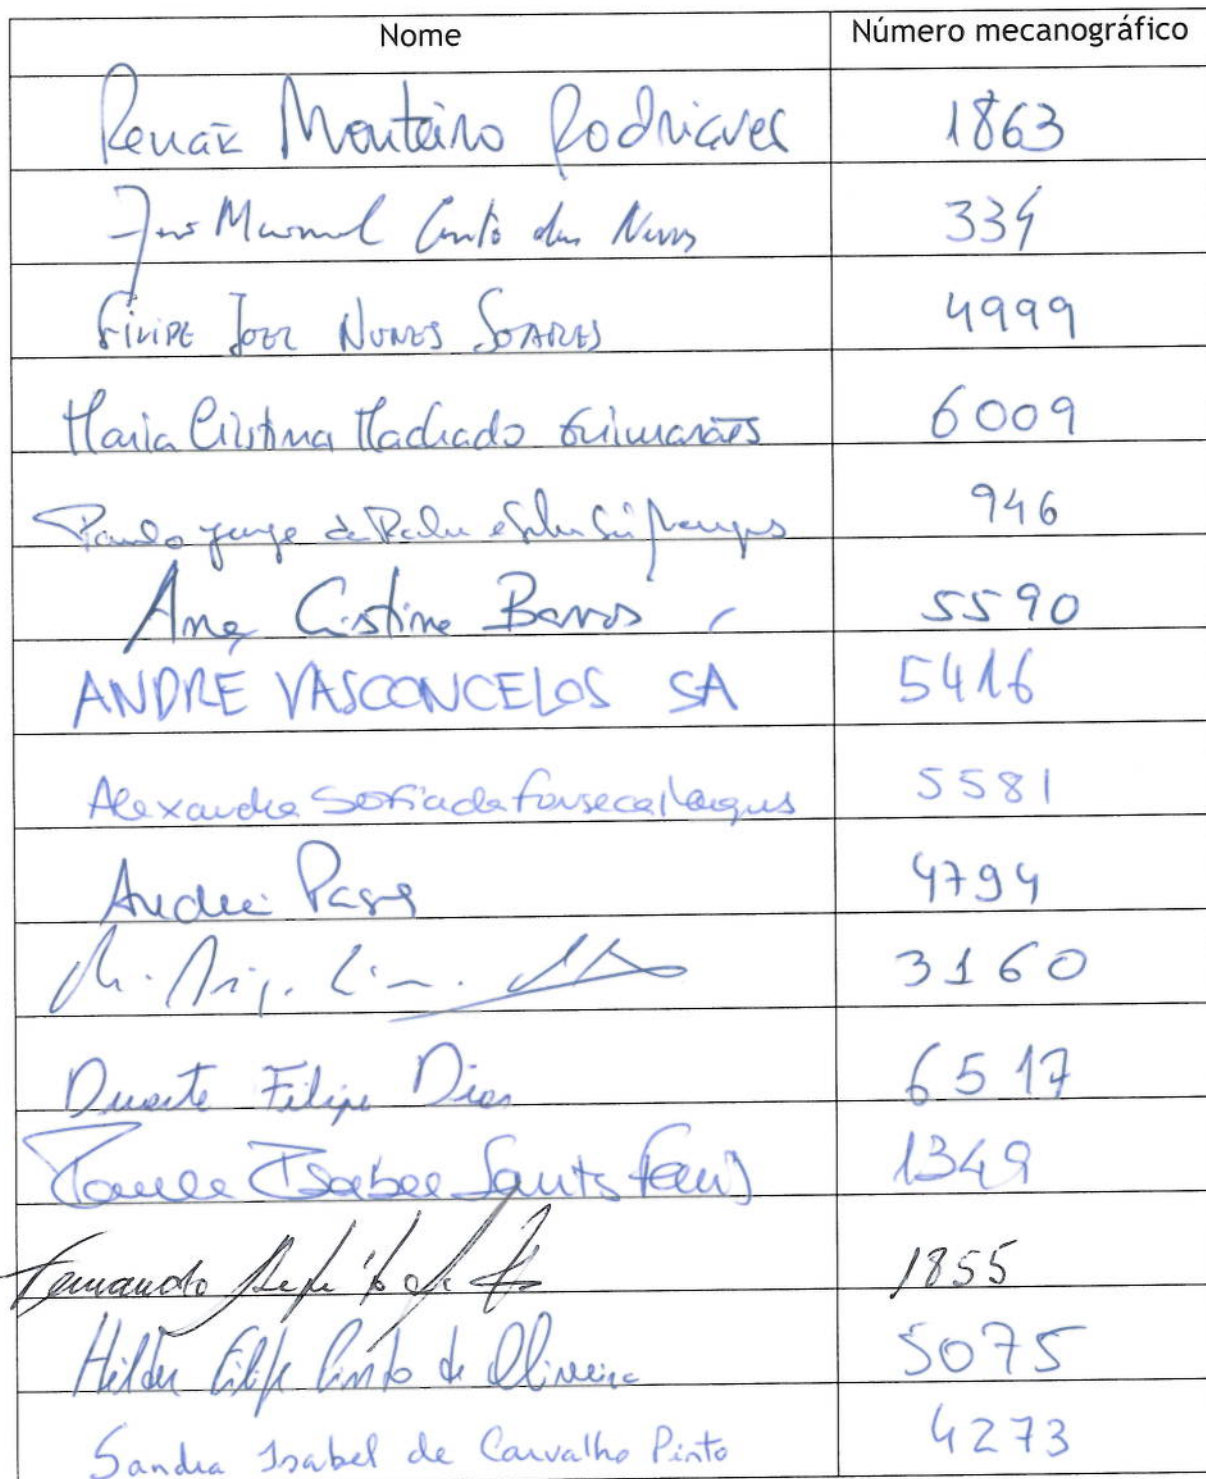 Nome Número mecanográfico
Renak Monteiro Rodrigues 1863
Manuel Couto das Neves 334
FILIPE JOEL NUNES SOARES 4999
Maria Cristina Machado Guimarães 6009
Paulo Jorge de e Silva 946
Ana Cristina Barros 5590
ANDRÉ VASCONCELOS SA 5416
Alexandra Sofia da Fonseca Vargus 5581
André 4794
3160
Duarte Filipe Dias 6517
Isabel Santos 1349
Fernando 1855
Hélder Filipe Pinto de Oliveira 5075
Sandra Isabel de Carvalho Pinto 4273